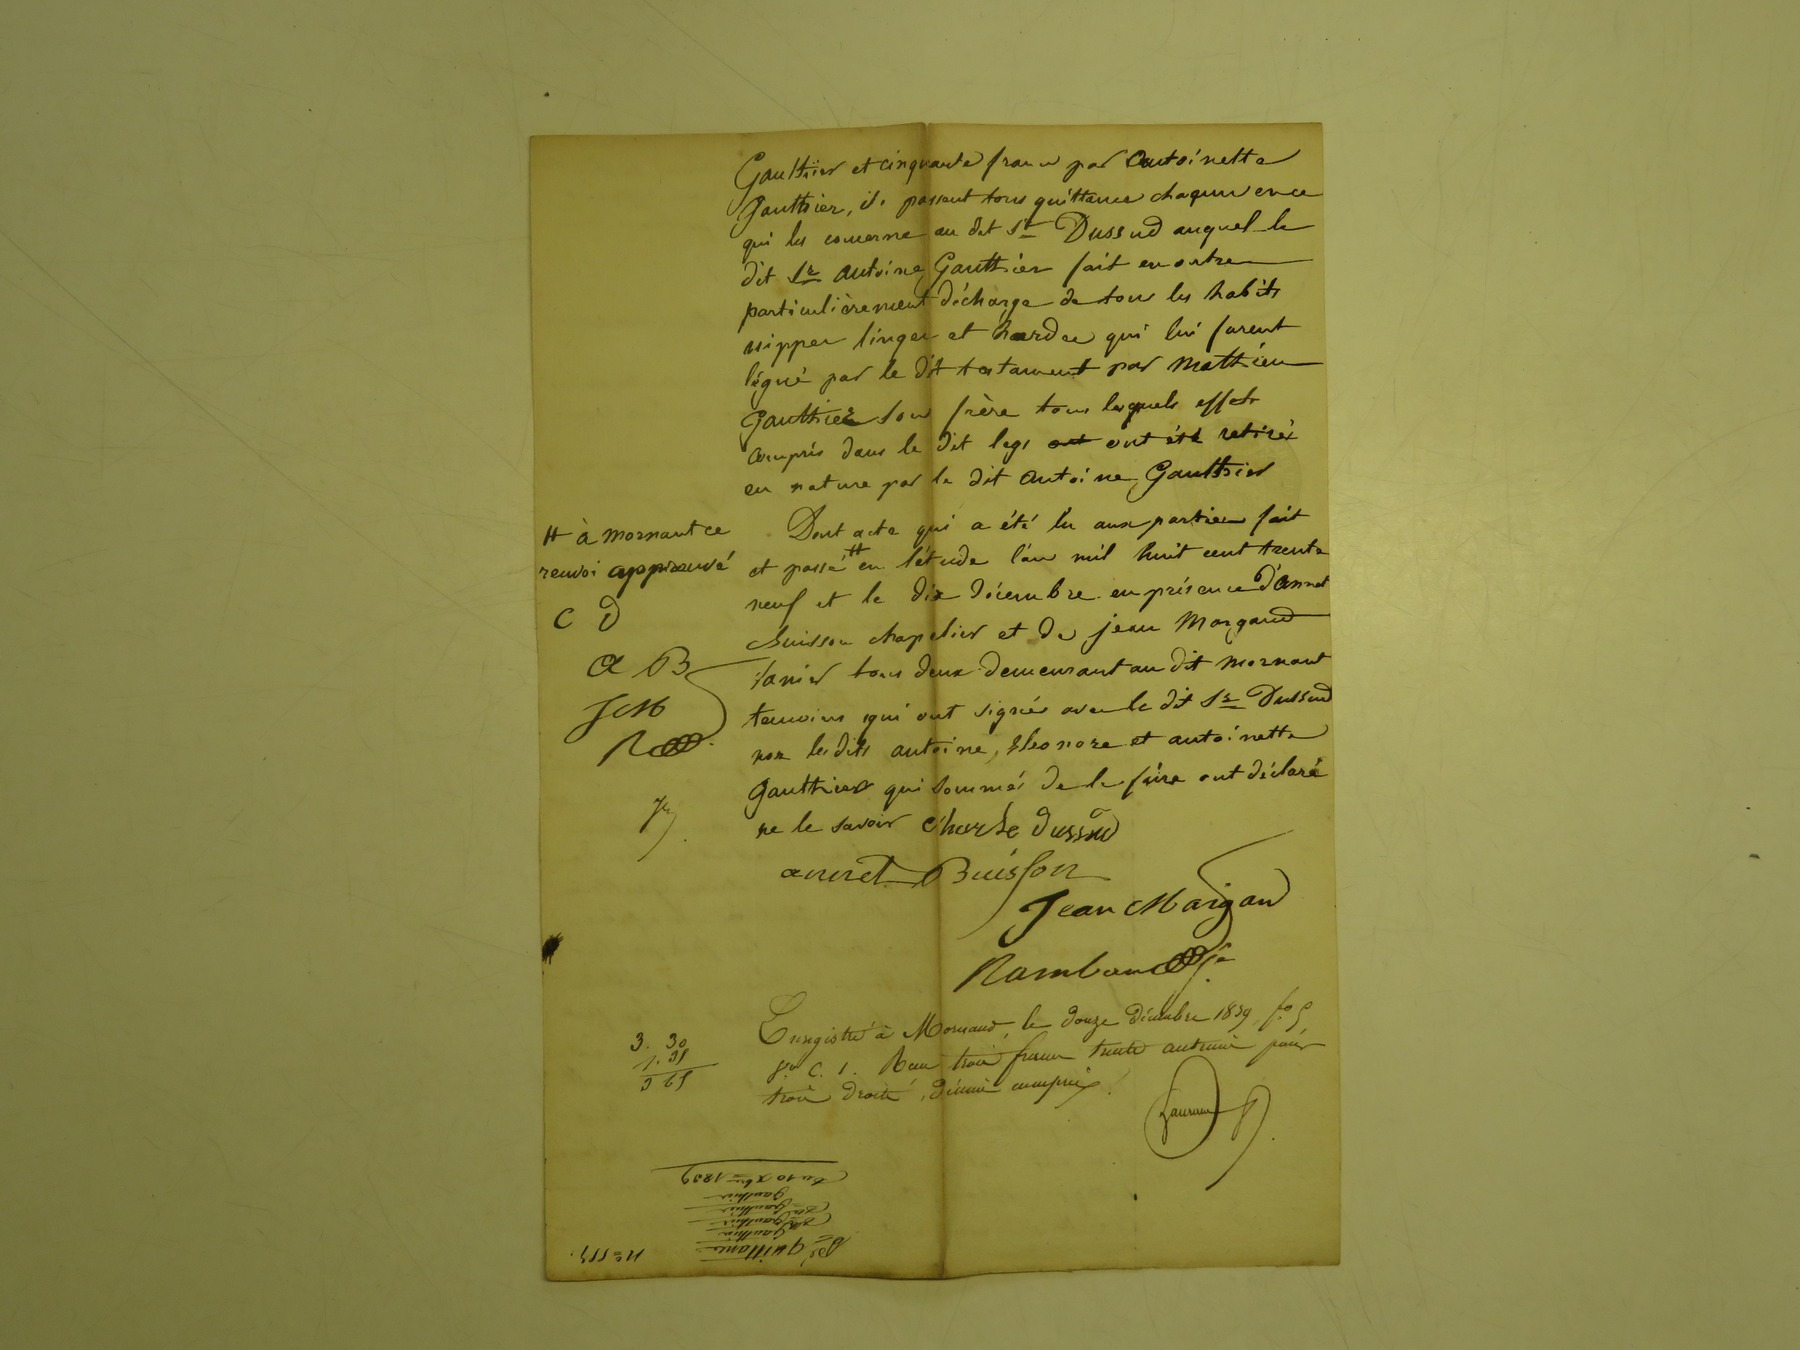 Gauthier et cinquante francs par antoinette
Gauthier, ils passent tous quittance chaqun en ce
qui les concerne au dit Sr Dussud auquel le
dit Sr antoine Gauthier fait en outre
particulièrement décharge de tous les habits
nippes linges et hardes qui lui furent
légué par le dit testament par Mathieu
Gauthier son frère tous lesquels effets
compris dans le dit legs ont ont été retirés
en nature par le dit antoine Gauthier
Dont acte qui a été lu aux parties fait
et passé # en l'étude l'an mil huit cent trente
neuf et le dix décembre en présence d'annet
Buisson chapelier et de jean Margand
tous deux demeurant au dit mornant
temoins qui ont signés avec le dit Sr Dussud
non les dits antoine, Eleonore et antoinette
Gauthier qui sommés de le faire ont déclaré
ne le savoir Charle Dussud
# à mornant ce
renvoi approuvé
C D
a B
J M
R
annet Buisson
Jean Margand
Enregistré à Mornant, le douze Décembre 1839, fo 5
C. 1. Reçu trois francs trente centimes pour
trois droits, décime compris.
3. 30
1. 35
du 10 Xbre 1839
Gauthier
Gauthier
Gauthier
Gauthier
quittance